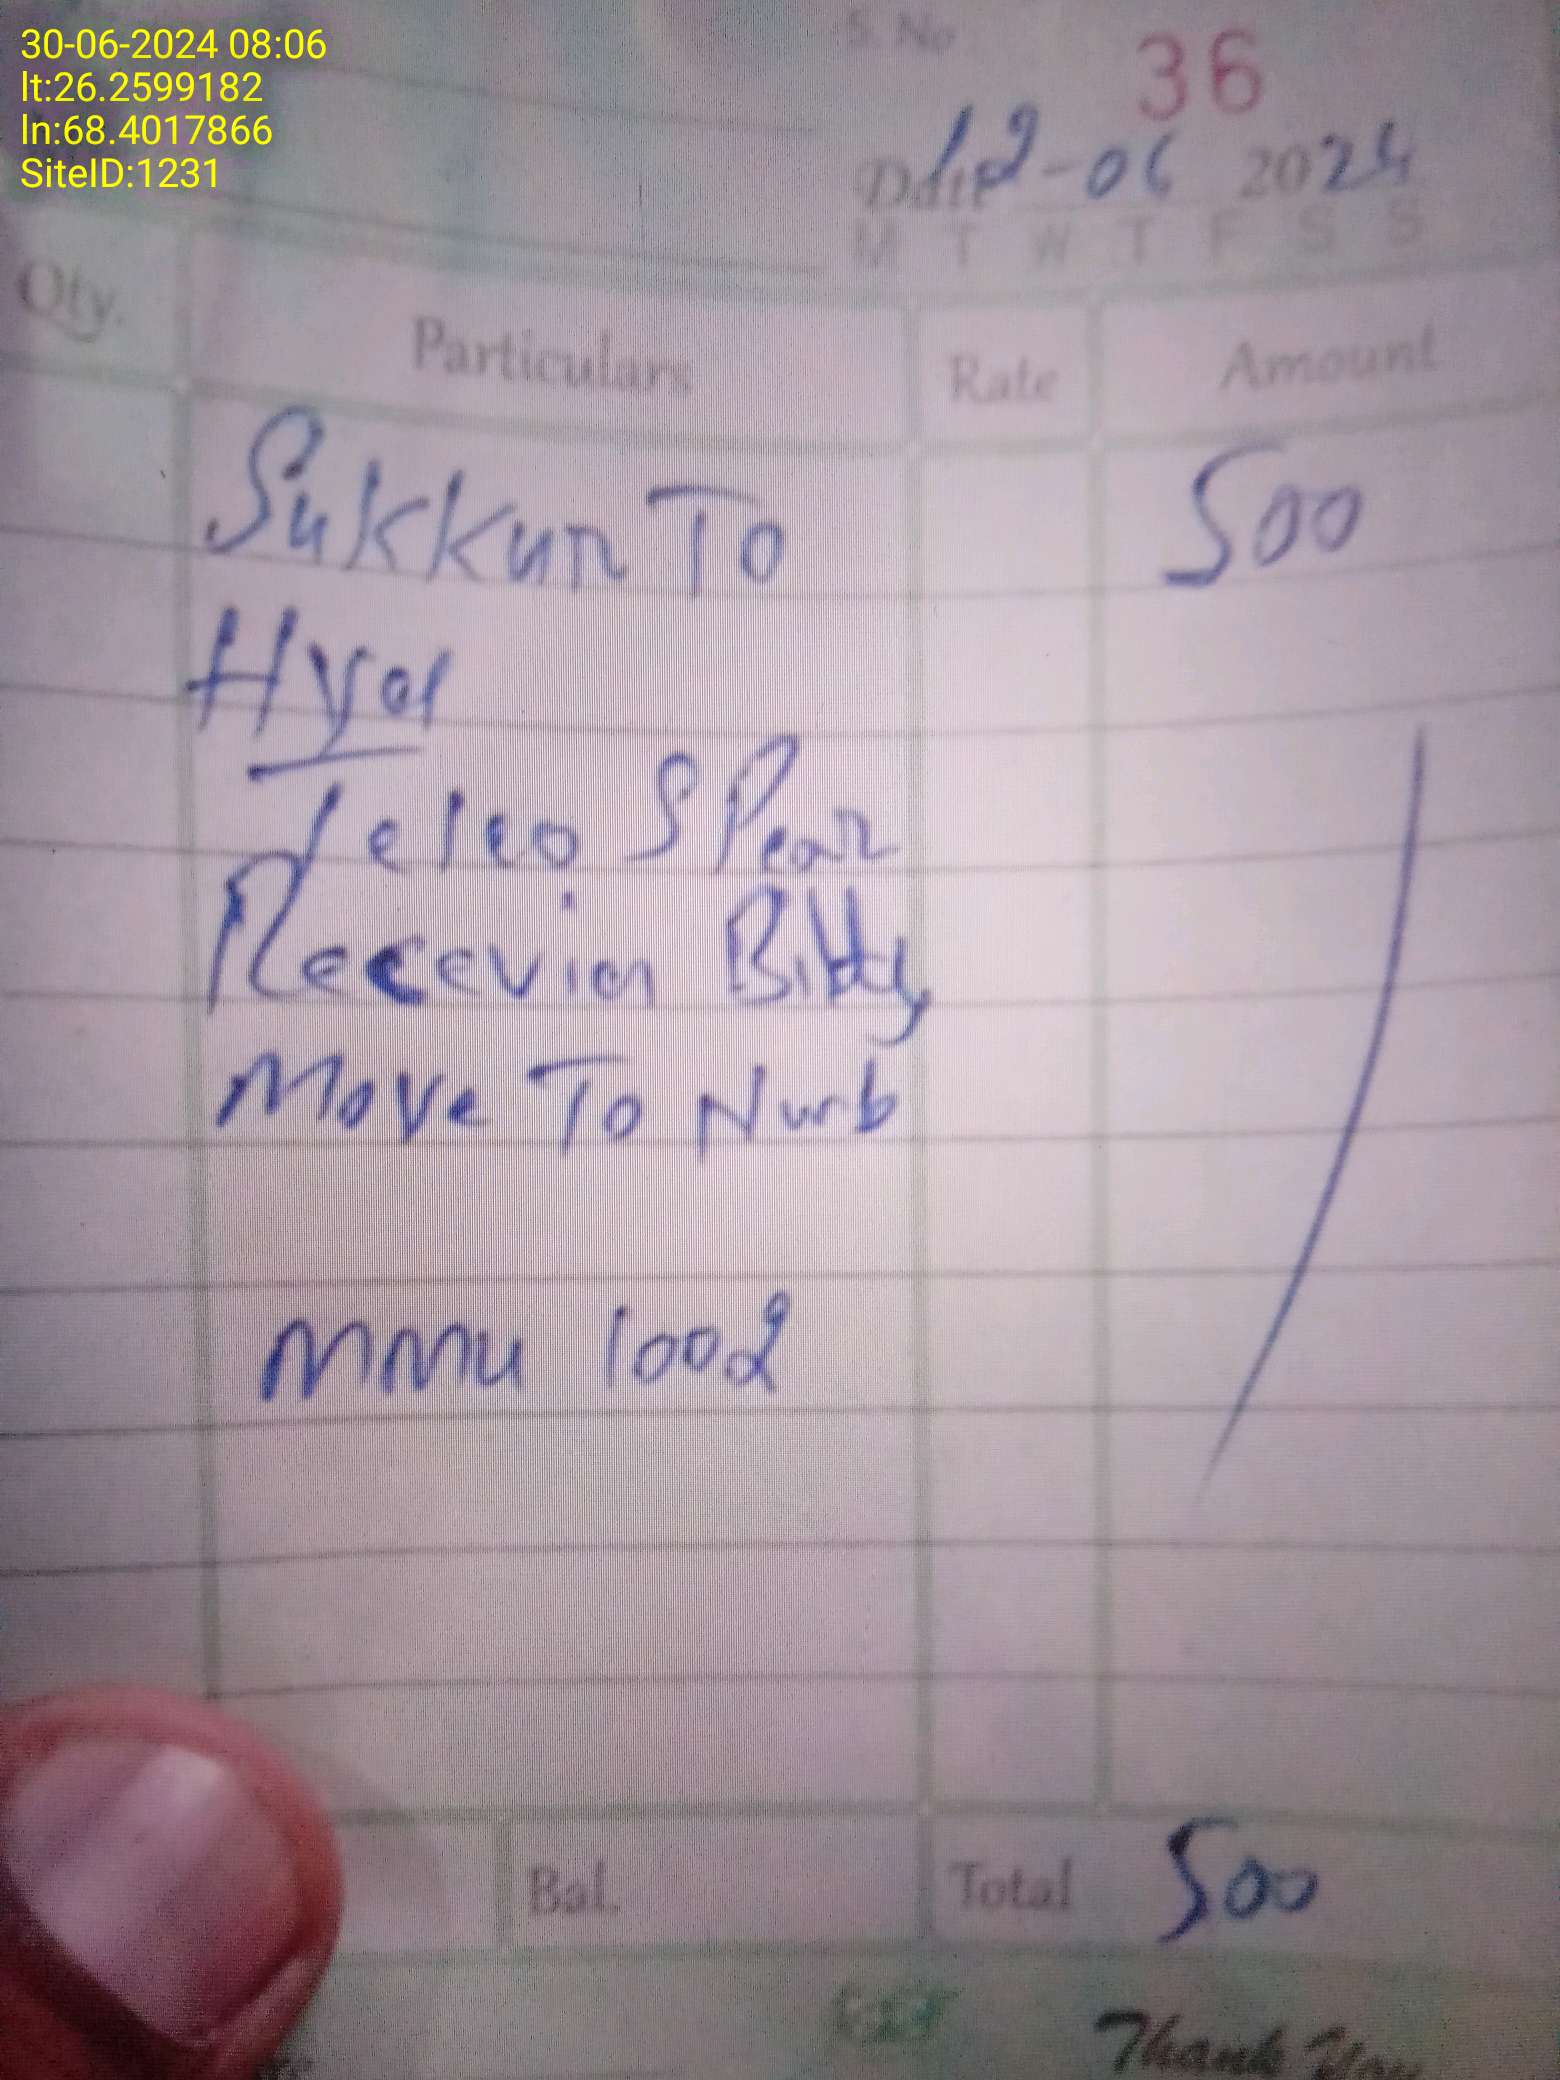 30-06-2024 08:06
lt:26.2599182
ln:68.4017866
SiteID:1231
S. No 36
Date 12-06 2024
M T W T F S S
Qty. Particulars Rate Amount
Sukkur To 500
Hyd
Teleo SPear
Recevin
Move To Nwb
MMU 1002
Bal. Total 500
Thank You